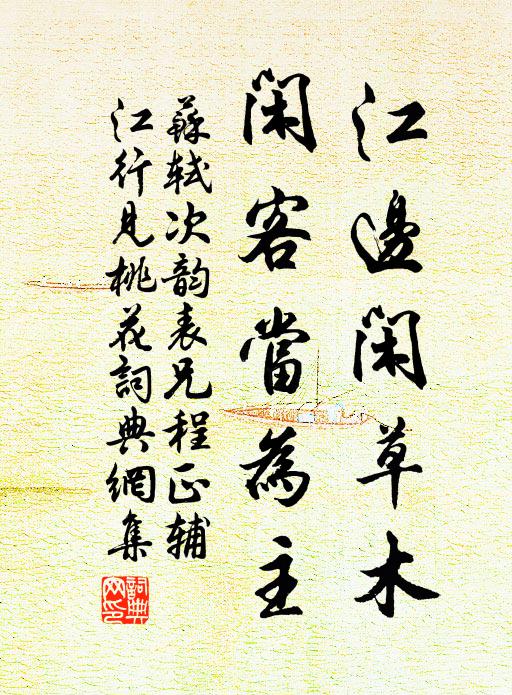 江邊閑草木
閑客當為主
蘇軾次韵表兄程正輔
江行見桃花詞典網集